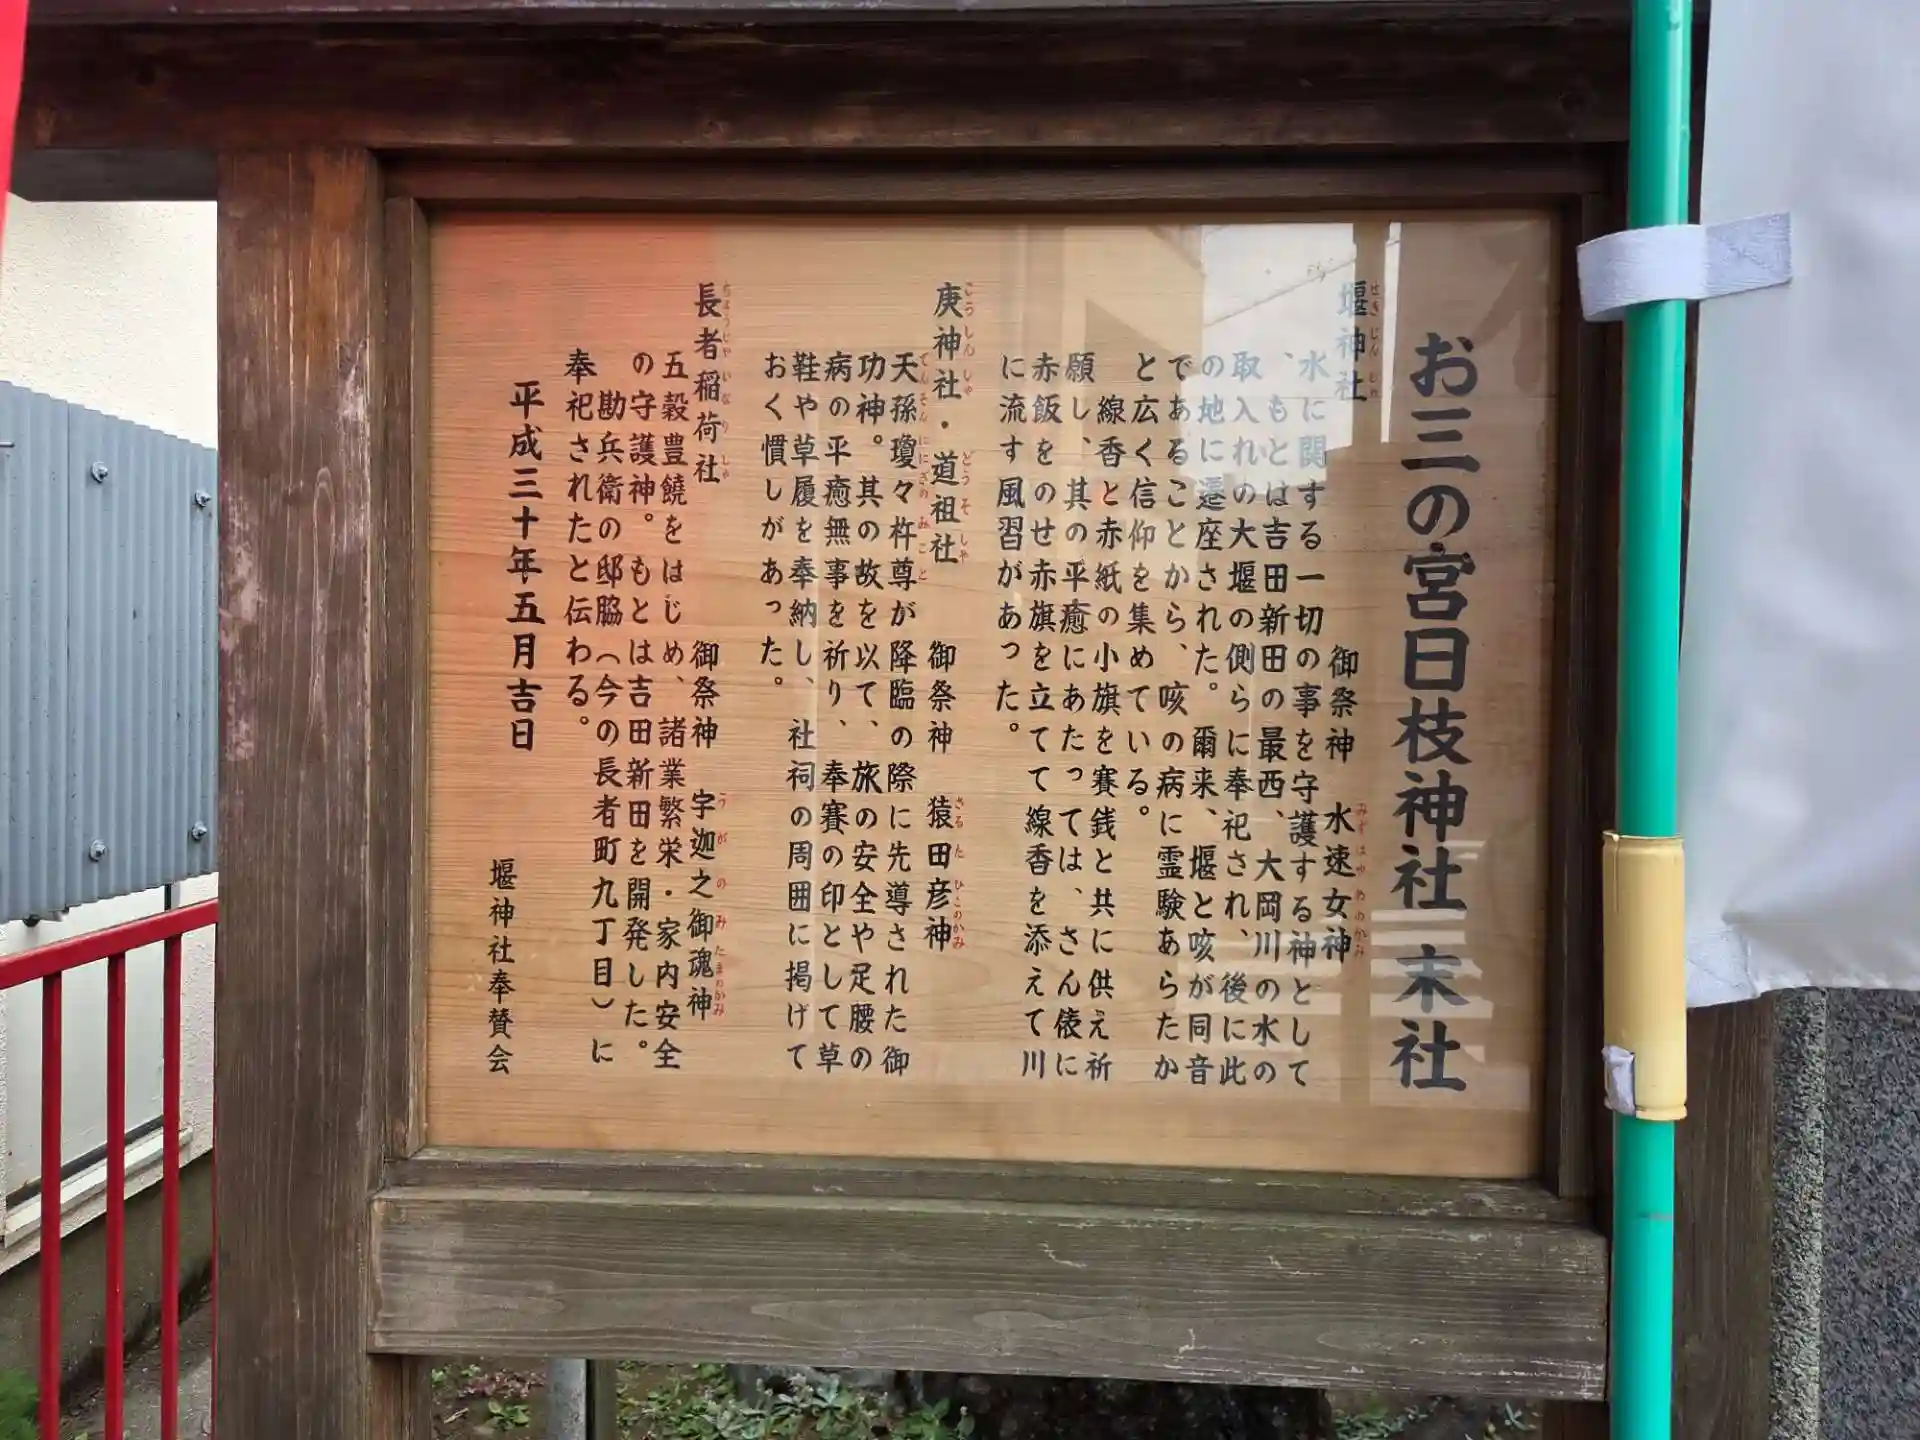 お三の宮日枝神社 末社
堰神社 御祭神 水速女神
せきじんしゃ みずはやめのかみ
水に関する一切の事を守護する神として
、もとは吉田新田の最西、大岡川の水の
取入れの大堰の側らに奉祀され、後に此
の地に遷座された。爾来、堰と咳が同音
であることから、咳の病に霊験あらたか
と広く信仰を集めている。
線香と赤紙の小旗を賽銭と共に供え祈
願し、其の平癒にあたっては、さん俵に
赤飯をのせ赤旗を立てて線香を添えて川
に流す風習があった。
庚神社・道祖社 御祭神 猿田彦神
こうしんしゃ どうそしゃ さるたひこのかみ
天孫瓊々杵尊が降臨の際に先導された御
てんそんににぎのみこと
功神。其の故を以て、旅の安全や足腰の
病の平癒無事を祈り、奉賽の印として草
鞋や草履を奉納し、社祠の周囲に掲げて
おく慣しがあった。
長者稲荷社 御祭神 宇迦之御魂神
ちょうじゃいなりしゃ うがのみたまのかみ
五穀豊饒をはじめ、諸業繁栄・家内安全
の守護神。もとは吉田新田を開発した。
勘兵衛の邸脇(今の長者町九丁目)に
奉祀されたと伝わる。
平成三十年五月吉日
堰神社奉賛会